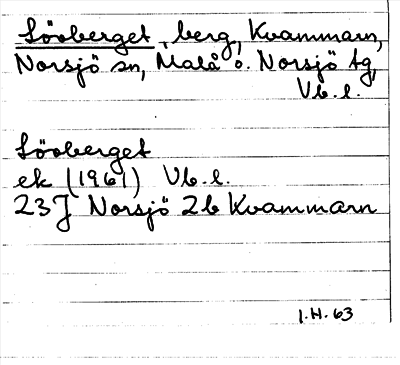 Lövberget, berg, Kvammarn,
Norsjö sn, Malå o. Norsjö tg,
Vb. l.
Lövberget
ek (1961) Vb. l.
23J Norsjö 2b Kvammarn
I.H. 63